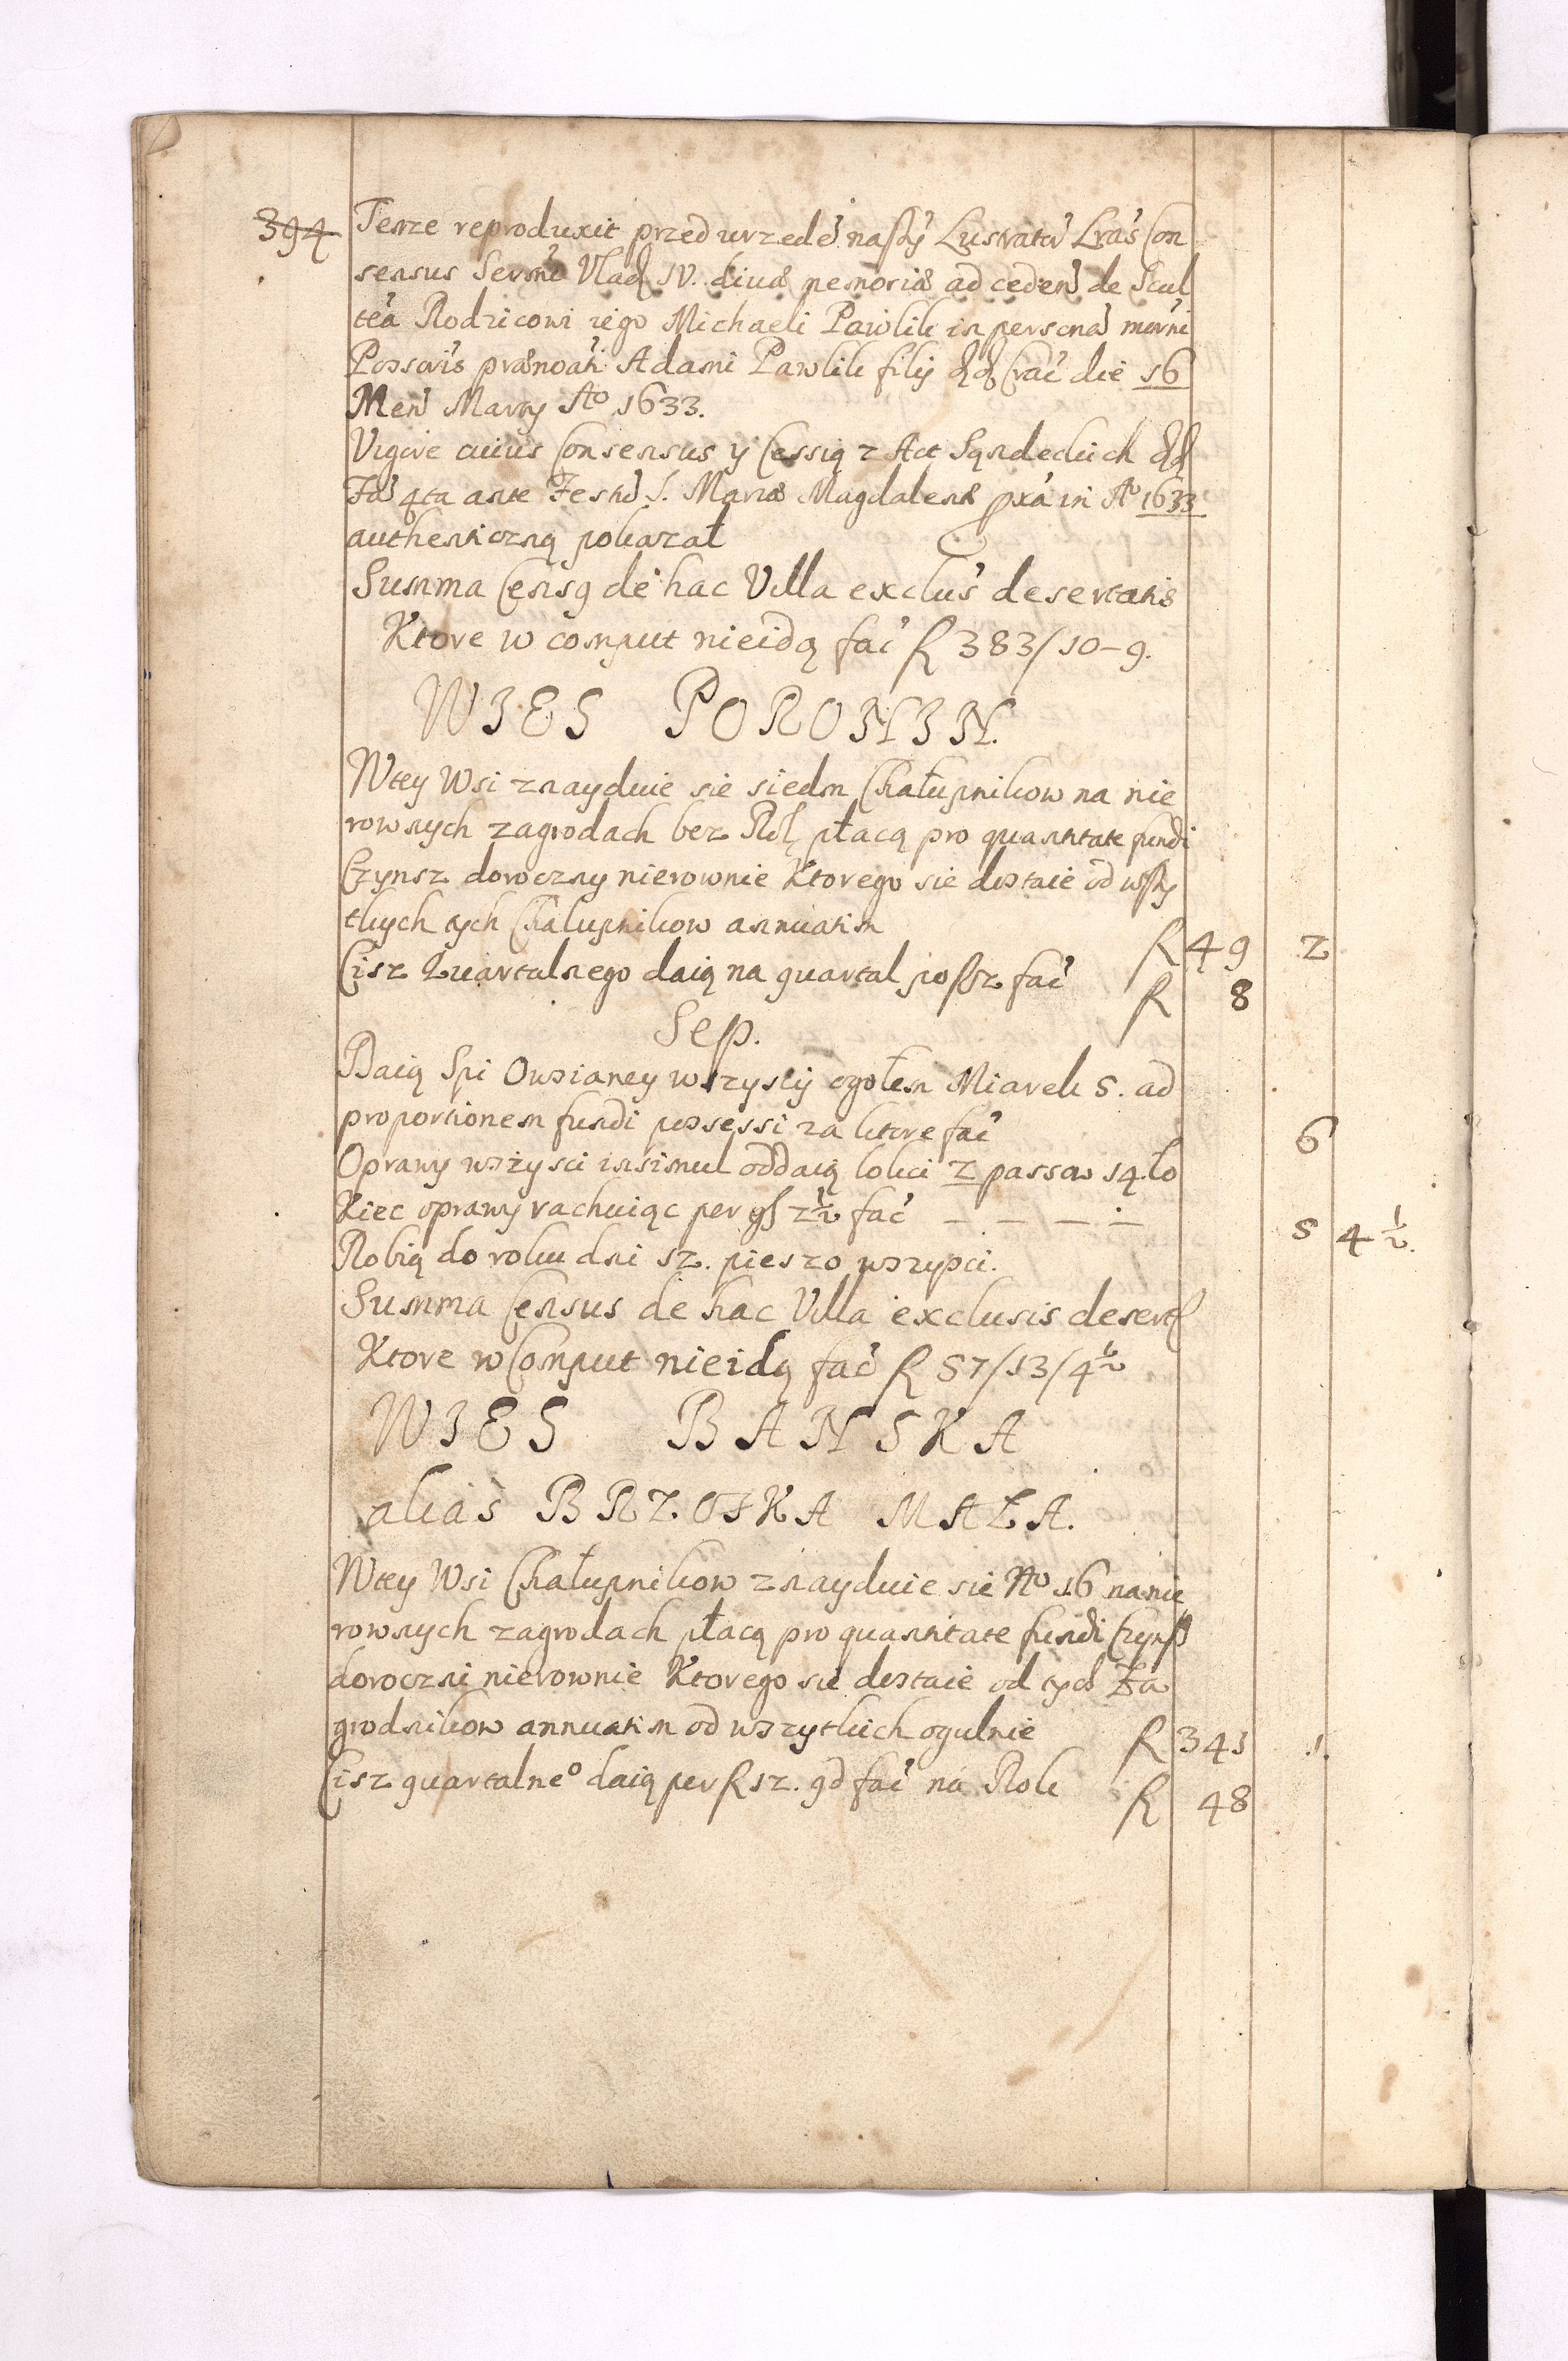 394
Tenze reproduxit przed urzedē naszÿ Lustrató Lrás Con
sensus Sermi Vlad IV. divæ memoriæ ad ceden de Scul
téa Rodzicowi iego Michaeli Pawlik in personā merni
Possoris prænoati Adami Pawlik filij dd Crać die 16
Men Marty Ao 1633.
Vigore cuius Consensus y Cessią z Act Sąndeckich dd
Fa 4ta ante Festū S. Mariæ Magdalenæ pxá in Ao 1633
authenticzną pokazał
Summa Censq de hac Villa exclus desertatis
Ktore w comput nieidą fać R 383/10-9.
WIES PORONIN.
Wtey Wsi znayduie sie siedm Chałupnikow na nie
rownych zagrodach bez Rol, płacą pro quantitate fundi
Czynsz doroczny nierownie Ktorego sie dostaie od wszÿ
tkych tych Chałupnikow annuatim
R 49 2
Cisz Quartalnego daią na quartal po sz fać
R 8
Sep.
Daią Spi Owsianey wszyscÿ ogołem Miarek 5. ad
proportionem fundi possessi za ktore fać
6
Oprawy wszysci insimul oddaią lokci 2 passow 14. ło
Kiec oprawy rachuiąc per gs 2 1/2 fać — — — —
5 4 1/2
Robią do roku dni 12. pieszo wszysci.
Summa Census de hac Villa exclusis desert
Ktore w Comput nieidą fać R 57/13/4 1/2
WIES BANSKA
alias BRZOSKA MAŁA.
Wtey Wsi Chałupnikow znayduie sie No 16 na nie
rownych zagrodach płacą pro quantitate fundi Czynsz
doroczni nierownie Ktorego sie dostaie od tych Za
grodnikow annuatim od wszytkich ogulnie
R 341 1.
Cisz quartalneo daią per R 12. qd fać na Rok
R 48